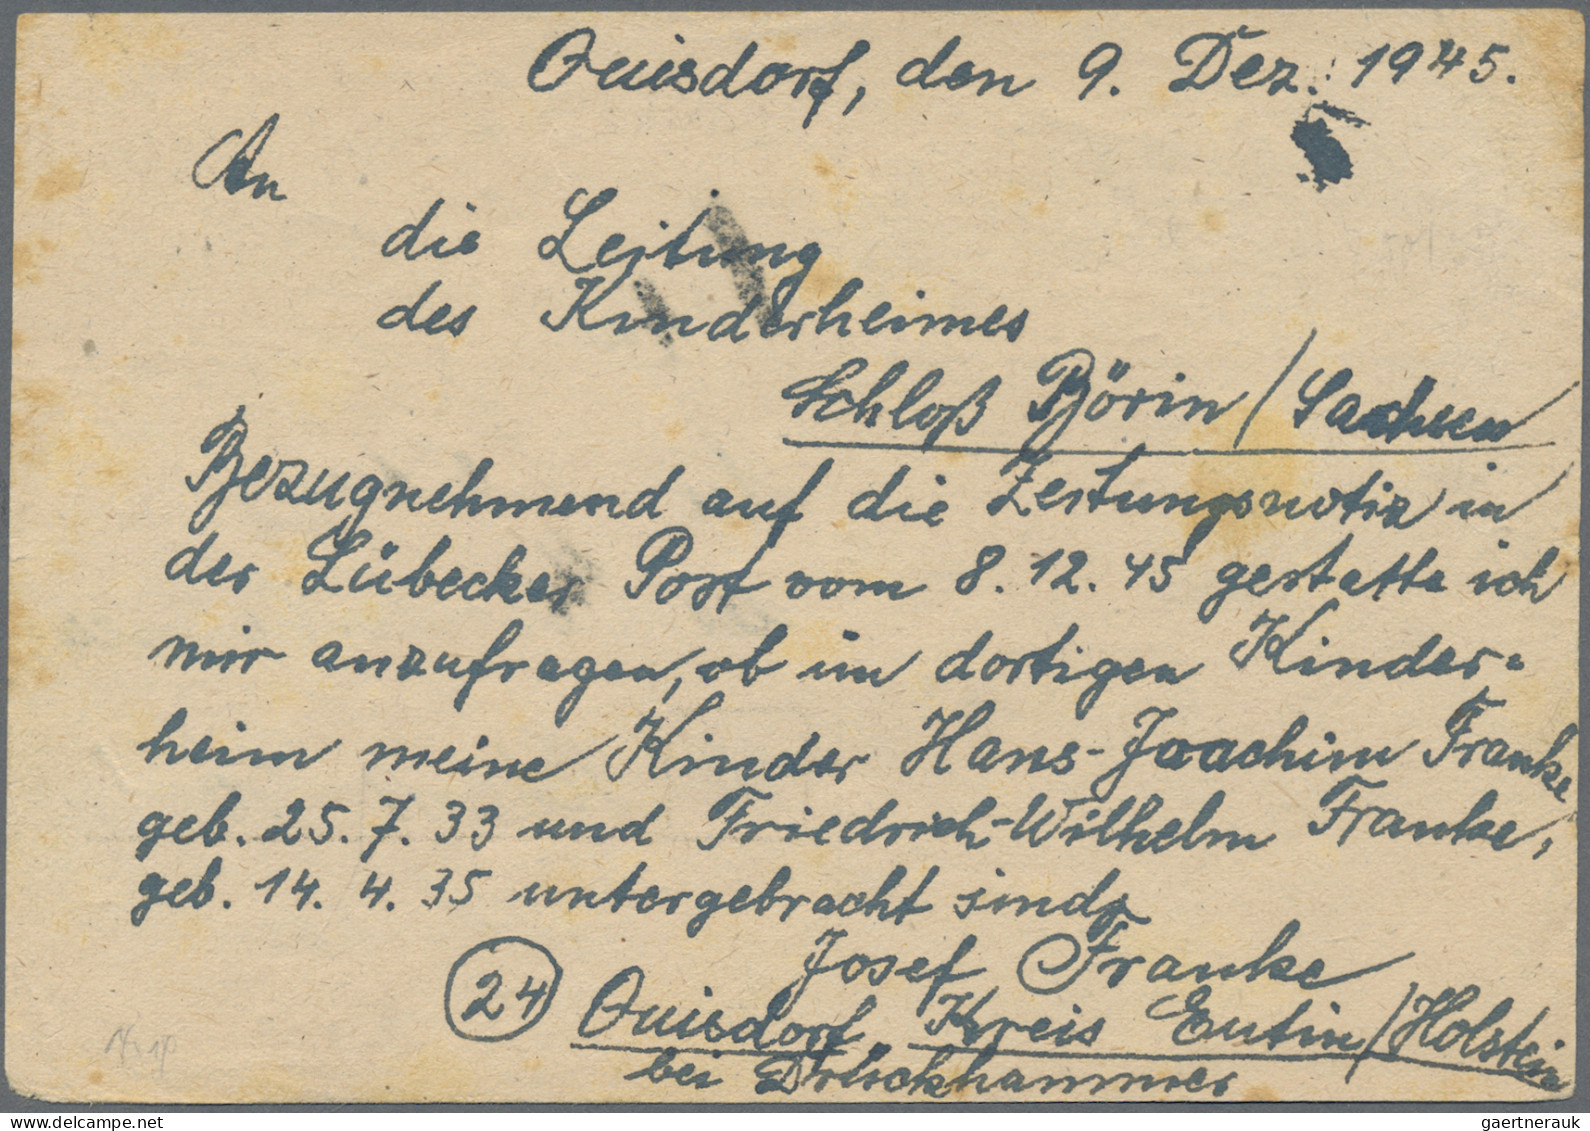 Quisdorf, den 9. Dez. 1945.
An
die Leitung
des Kinderheimes
Schloß Börin / Sachsen
Bezugnehmend auf die Zeitungsnotiz in
der Lübecker Post vom 8.12.45 gestatte ich
mir anzufragen, ob im dortigen Kinder=
heim meine Kinder Hans-Joachim Franke
geb. 25.7.33 und Friedrich-Wilhelm Franke,
geb. 14.4.35 untergebracht sind.
Josef Franke
24 Quisdorf, Kreis Eutin/Holstein
bei Drückhammer
gaertnerauk